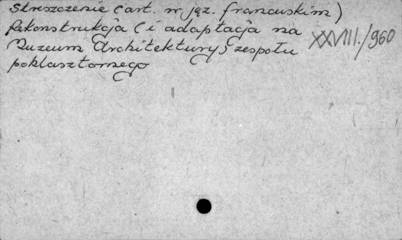 Streszczenie (art. w jęz. francuskim)
Rekonstrukcja (i adaptacja na
Muzeum Architektury) zespołu
poklasztornego
XXVIII./960